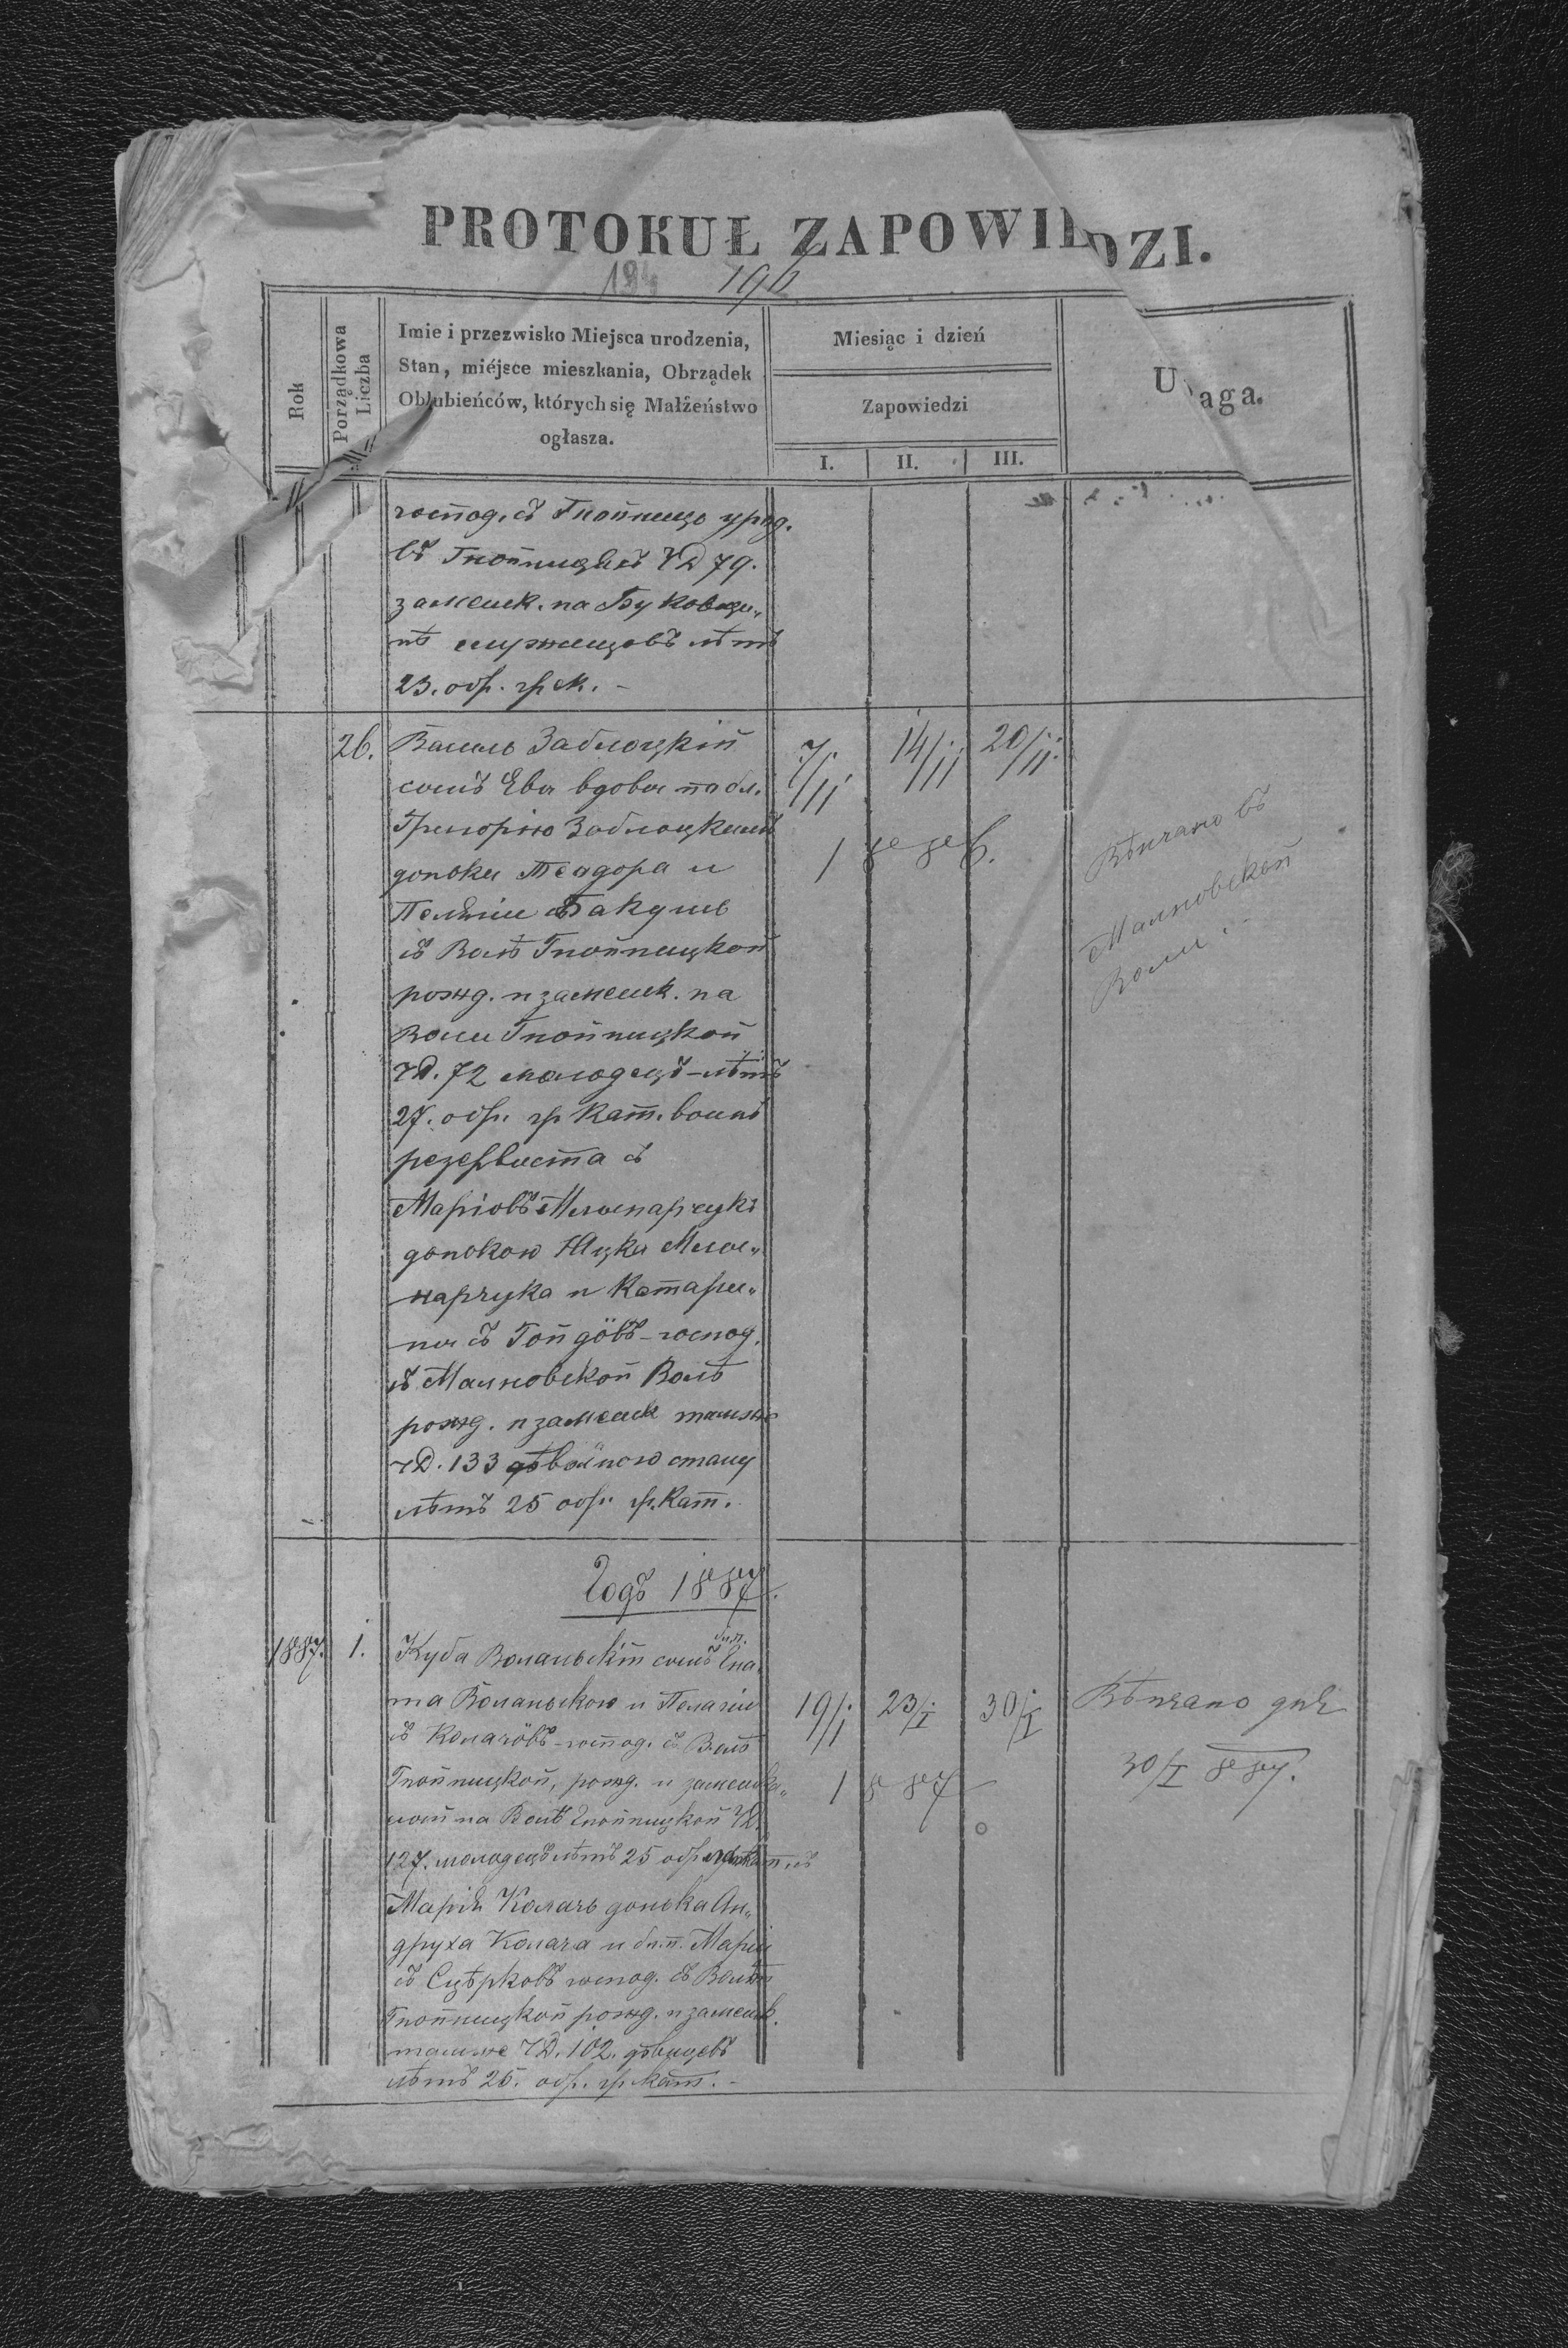 PROTOKUŁ ZAPOWIEDZI.
194 196
Rok
Porządkowa Liczba
Imie i przezwisko Miejsca urodzenia,
Stan, miéjsce mieszkania, Obrządek
Oblubieńców, których się Małżeństwo
ogłasza.
Miesiąc i dzień
Zapowiedzi
I. II. III.
Uwaga.
господ. съ Гнойницъ урод.
въ Гнойницѣхъ ЧД 79.
замешк. на Буковин„
лѣтъ
23. обр. гр. к. -
26. Василь Заблоцкій
сынъ Евы вдовы по бл.
Григорію Заблоцкимъ
доньки Теодора и
Пелагіи Бакунъ
съ Волѣ Гнойницкой
рожд. и замешк. на
Воли Гнойницкой
ЧД. 72 молодецъ - лѣтъ
27. обр. гр. кат.
резервиста съ
Маріовъ Млынарчукъ
донькою Яцка Млы„
нарчука и Катари„
ны съ Гойдôвъ - господ.
съ Малновской Волѣ
рожд. и замешк тамже
ЧД. 133 стану
лѣтъ 25 обр. гр. Кат.
7/11 14/11 20/11
1886.
Вѣнчано въ
Малновской
Воли
Годъ 1887.
1887. 1. Куба Воланьскій сынъ бл.п. Гна„
та Воланьского и Пелагіи
съ Колачôвъ - господ. съ Волѣ
Гнойницкой, рожд. и замешка„
лый на Волѣ Гнойницкой ЧД.
127. молодецъ лѣтъ 25 обр. гр. кат. съ
Марія Колачъ донька Ан„
друха Колача и бл.п. Маріи
съ господ. съ Волѣ
Гнойницкой рожд. и замешк.
тамже ЧД. 102. дѣвицевъ
лѣтъ 25. обр. гр. кат. -
19/I 23/I 30/I
1887
Вѣнчано дня
30/I 887.